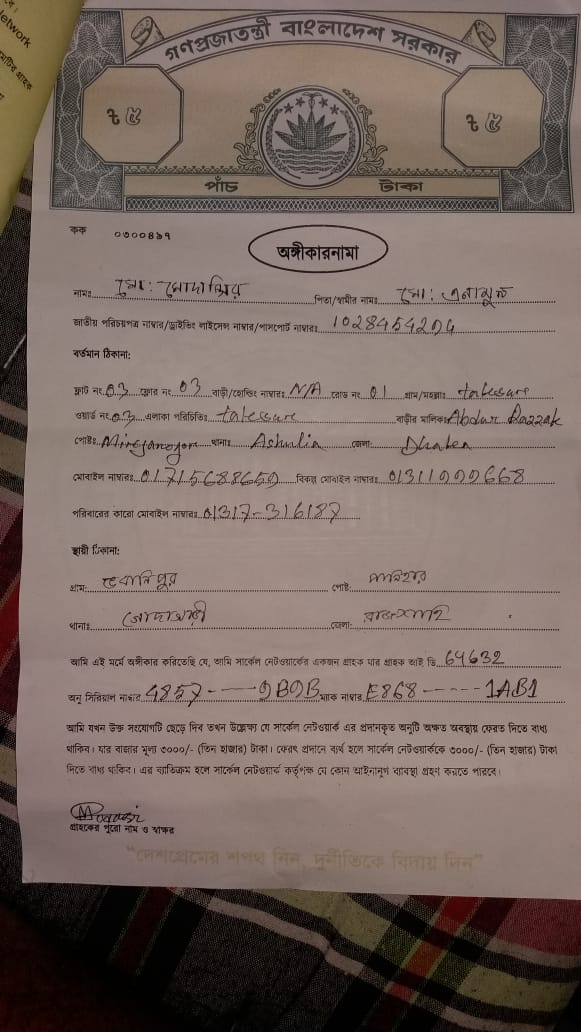 etwork
গণপ্রজাতন্ত্রী বাংলাদেশ সরকার
৳ ৫ ৳ ৫
পাঁচ টাকা
কক ০৩০০৪৯৭
অঙ্গীকারনামা
নামঃ মো: মোদাশ্বির পিতা/স্বামীর নামঃ মো: এনামুল
জাতীয় পরিচয়পত্র নাম্বার/ড্রাইভিং লাইসেন্স নাম্বার/পাসপোর্ট নাম্বারঃ 1028454204
বর্তমান ঠিকানা:
ফ্লাট নং 03 ফ্লোর নং 03 বাড়ী/হোল্ডিং নাম্বারঃ N/A রোড নং 01 গ্রাম/মহল্লাঃ
ওয়ার্ড নং 03 এলাকা পরিচিতিঃ বাড়ীর মালিকঃ Abdur Razzak
পোষ্টঃ থানাঃ Ashulia জেলা: Dhaka
মোবাইল নাম্বারঃ 01715688659 বিকল্প মোবাইল নাম্বারঃ 01311999668
পরিবারের কারো মোবাইল নাম্বারঃ 01317-316187
স্থায়ী ঠিকানা:
গ্রাম: পোষ্ট:
থানাঃ গোদাগাড়ী জেলা: রাজশাহি
আমি এই মর্মে অঙ্গীকার করিতেছি যে, আমি সার্কেল নেটওয়ার্কের একজন গ্রাহক যার গ্রাহক আই ডি 64632
অনু সিরিয়াল নাম্বার 4857-----9B9B ম্যাক নাম্বার E868-----1AB1
আমি যখন উক্ত সংযোগটি ছেড়ে দিব তখন উল্লেক্ষ্য যে সার্কেল নেটওয়ার্ক এর প্রদানকৃত অনুটি অক্ষত অবস্থায় ফেরত দিতে বাধ্য
থাকিব। যার বাজার মূল্য ৩০০০/- (তিন হাজার) টাকা। ফেরৎ প্রদানে ব্যর্থ হলে সার্কেল নেটওয়ার্ককে ৩০০০/- (তিন হাজার) টাকা
দিতে বাধ্য থাকিব। এর ব্যতিক্রম হলে সার্কেল নেটওয়ার্ক কর্তৃপক্ষ যে কোন আইনানুগ ব্যবস্থা গ্রহণ করতে পারবে।
গ্রাহকের পুরো নাম ও স্বাক্ষর
"দেশপ্রেমের শপথ নিন, দুর্নীতিকে বিদায় দিন"